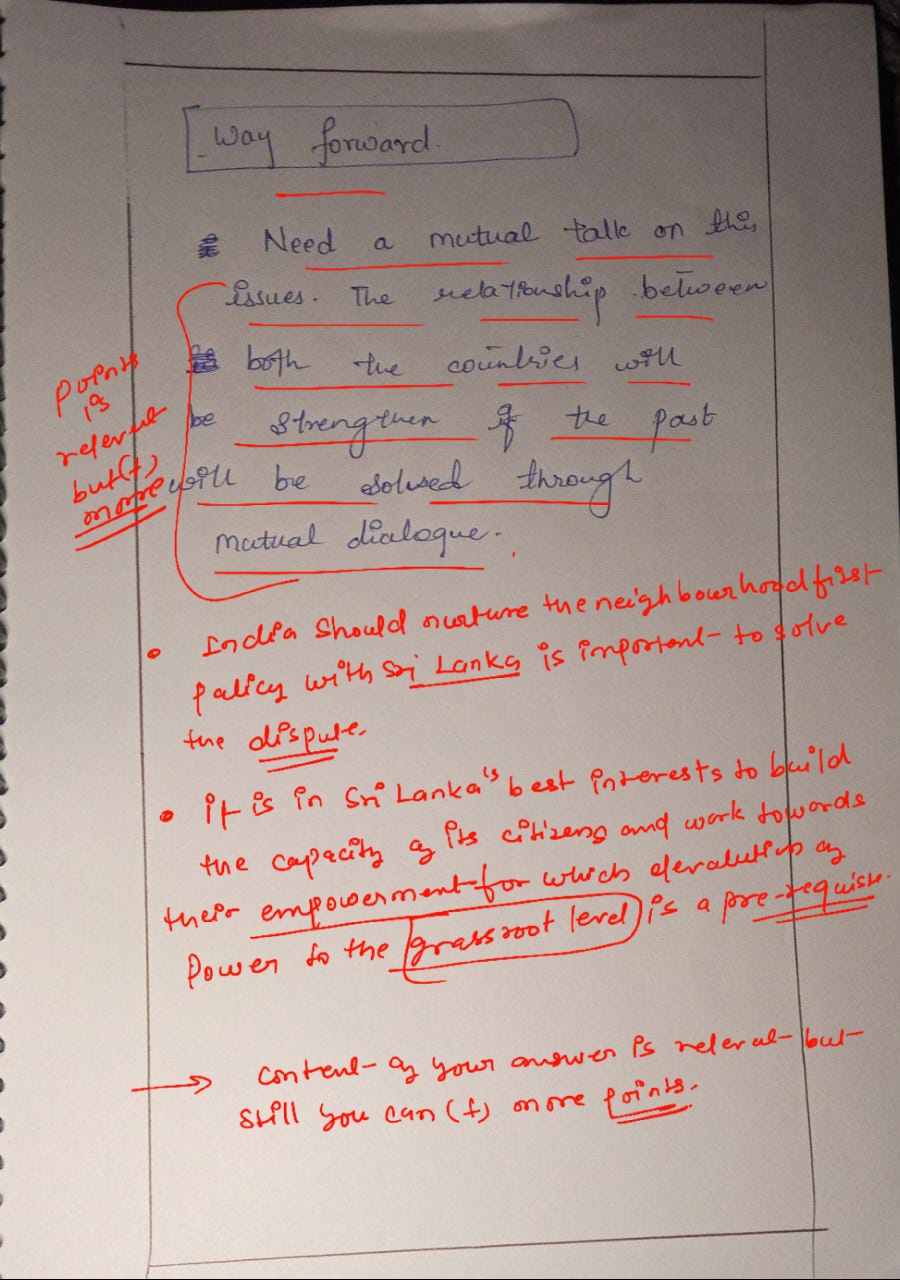 Way forward.
Need a mutual talk on this
issues. The relationship between
both the countries will
be strengthen if the past
will be solved through
mutual dialogue.
Points
is
relevent
but (+)
more
• India should nurture the neighbourhood first
policy with Sri Lanka is important to solve
the dispute.
• it is in Sri Lanka's best interests to build
the capacity of its citizens and work towards
their empowerment for which devalution of
Power to the grassroot level is a pre-requisite.
→ content of your answer is relevent but
still you can (+) more points.